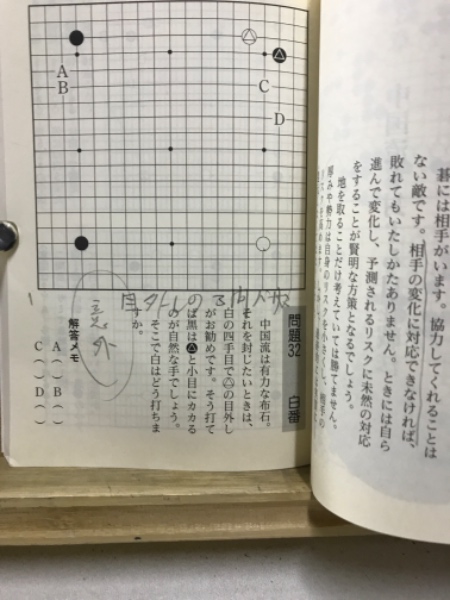 碁には相手がいます。協力してくれることは
ない敵です。相手の変化に対応できなければ、
敗れてもいたしかたありません。ときには自ら
進んで変化し、予測されるリスクに未然の対応
をすることが賢明な方策となるでしょう。
地を取ることだけ考えていては勝てません。
厚みや勢力は自身のリスクを小さくし、相手の
A
B
C
D
問題32 白番
中国流は有力な布石。
それを封じたいときは、
白の四手目で△の目外し
がお勧めです。そう打て
ば黒は▲と小目にカカる
のが自然な手でしょう。
そこで白はどう打ちま
すか。
解答メモ
A( ) B( )
C( ) D( )
目外しの
意外